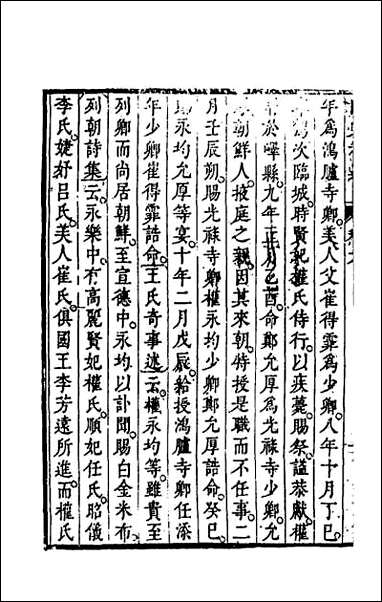 年爲鴻臚寺卿美人父崔得霏爲少卿八年十月丁巳
次臨城時賢妃權氏侍行以疾薨賜祭諡恭獻權
於嶧縣九年正月己酉命鄭允厚爲光祿寺少卿允
朝鮮人掖庭之親因其來朝特授是職而不任事二
月壬辰朔賜光祿寺卿權永均少卿鄭允厚誥命癸巳
永均允厚等宴十年二月戊辰給授鴻臚寺卿任添
年少卿崔得霏誥命王氏奇事述云權永均等雖貴至
列卿而尚居朝鮮至宣德中永均以訃聞賜白金米布
列朝詩集云永樂中有高麗賢妃權氏順妃任氏昭儀
李氏婕妤呂氏美人崔氏俱國王李芳遠所進而權氏